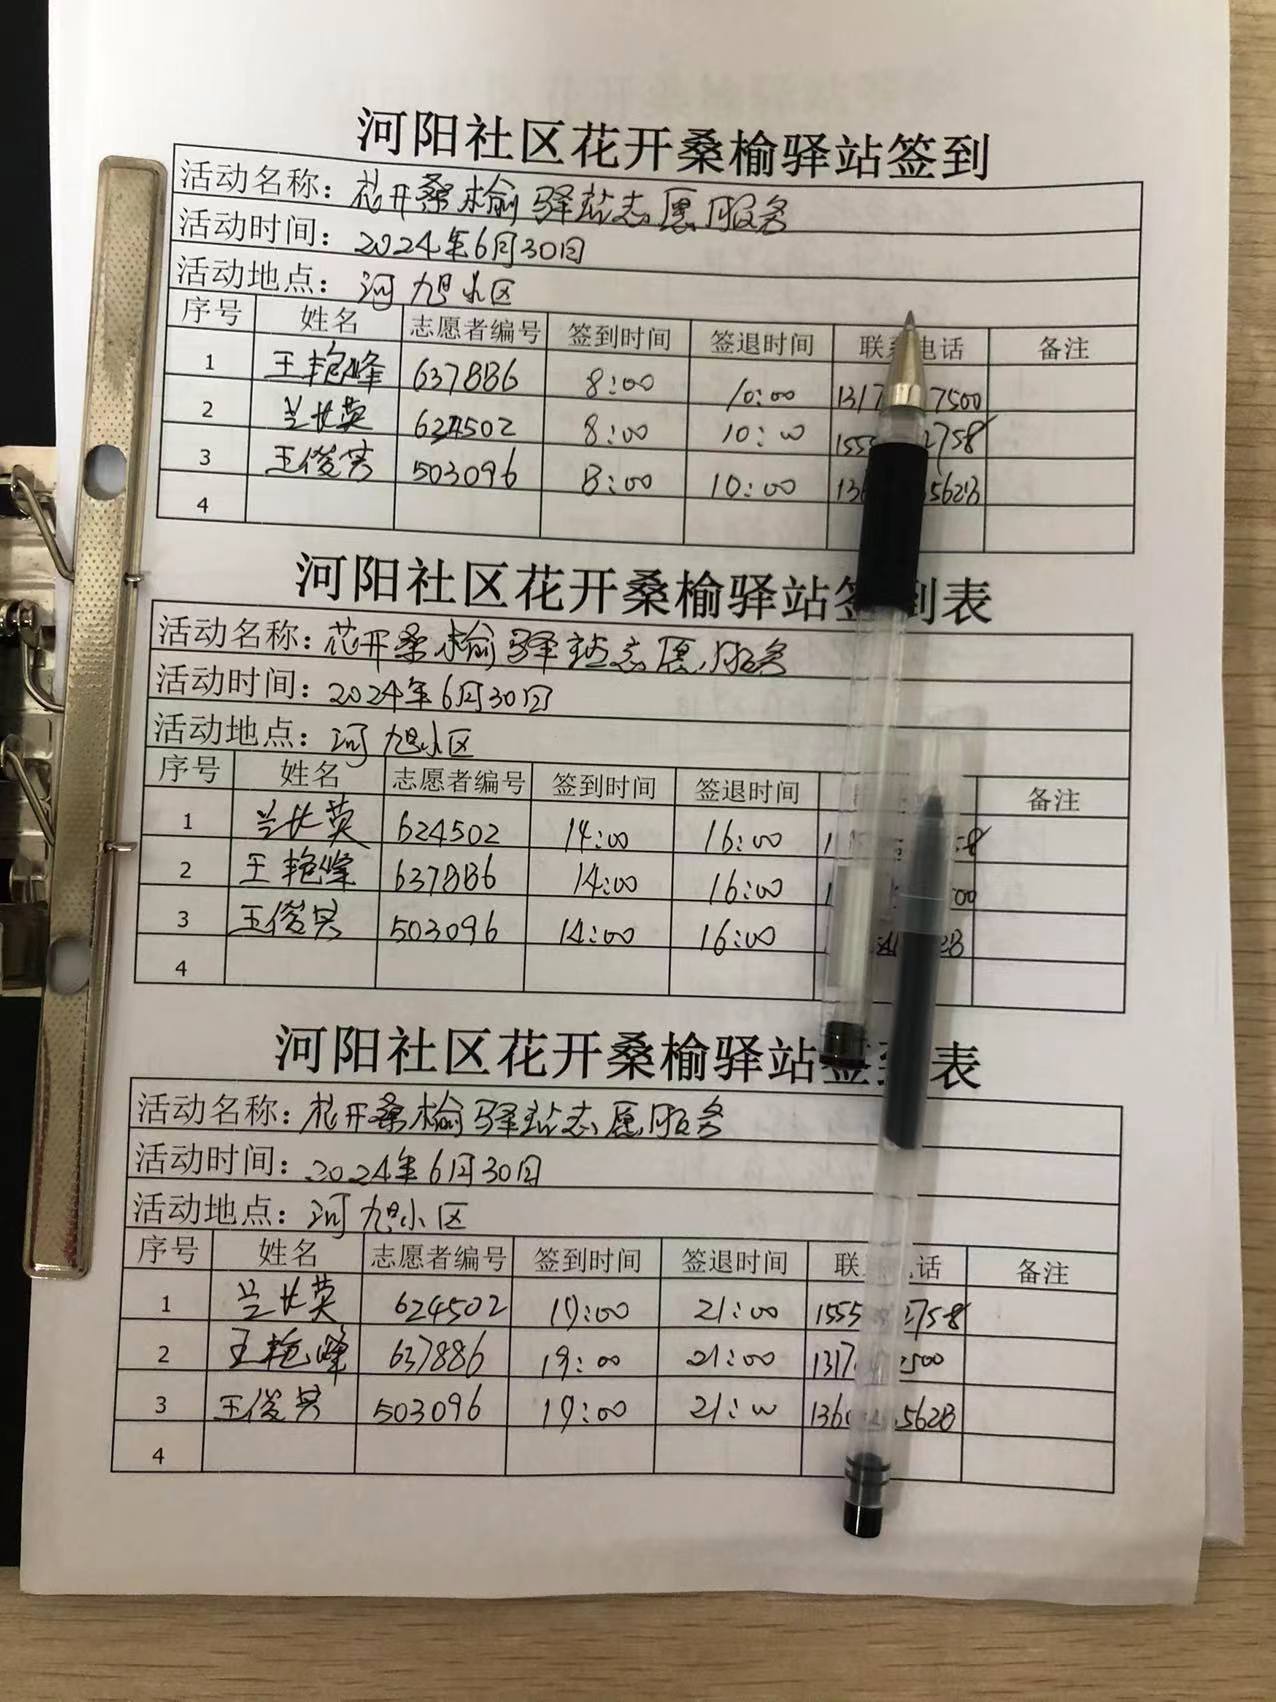 河阳社区花开桑榆驿站签到
活动名称：花开桑榆驿站志愿服务
活动时间：2024年6月30日
活动地点：河旭小区
序号 姓名 志愿者编号 签到时间 签退时间 联系电话 备注
1 王艳峰 637886 8:00 10:00 1317 7500
2 兰长英 624502 8:00 10:00 1555 2758
3 王俊 503096 8:00 10:00 136 5628
4
河阳社区花开桑榆驿站签到表
活动名称：花开桑榆驿站志愿服务
活动时间：2024年6月30日
活动地点：河旭小区
序号 姓名 志愿者编号 签到时间 签退时间 备注
1 兰长英 624502 14:00 16:00
2 王艳峰 637886 14:00 16:00
3 王俊 503096 14:00 16:00
4
河阳社区花开桑榆驿站签到表
活动名称：花开桑榆驿站志愿服务
活动时间：2024年6月30日
活动地点：河旭小区
序号 姓名 志愿者编号 签到时间 签退时间 联 话 备注
1 兰长英 624502 19:00 21:00 1555 2758
2 王艳峰 637886 19:00 21:00 1317 500
3 王俊 503096 19:00 21:00 136 5628
4